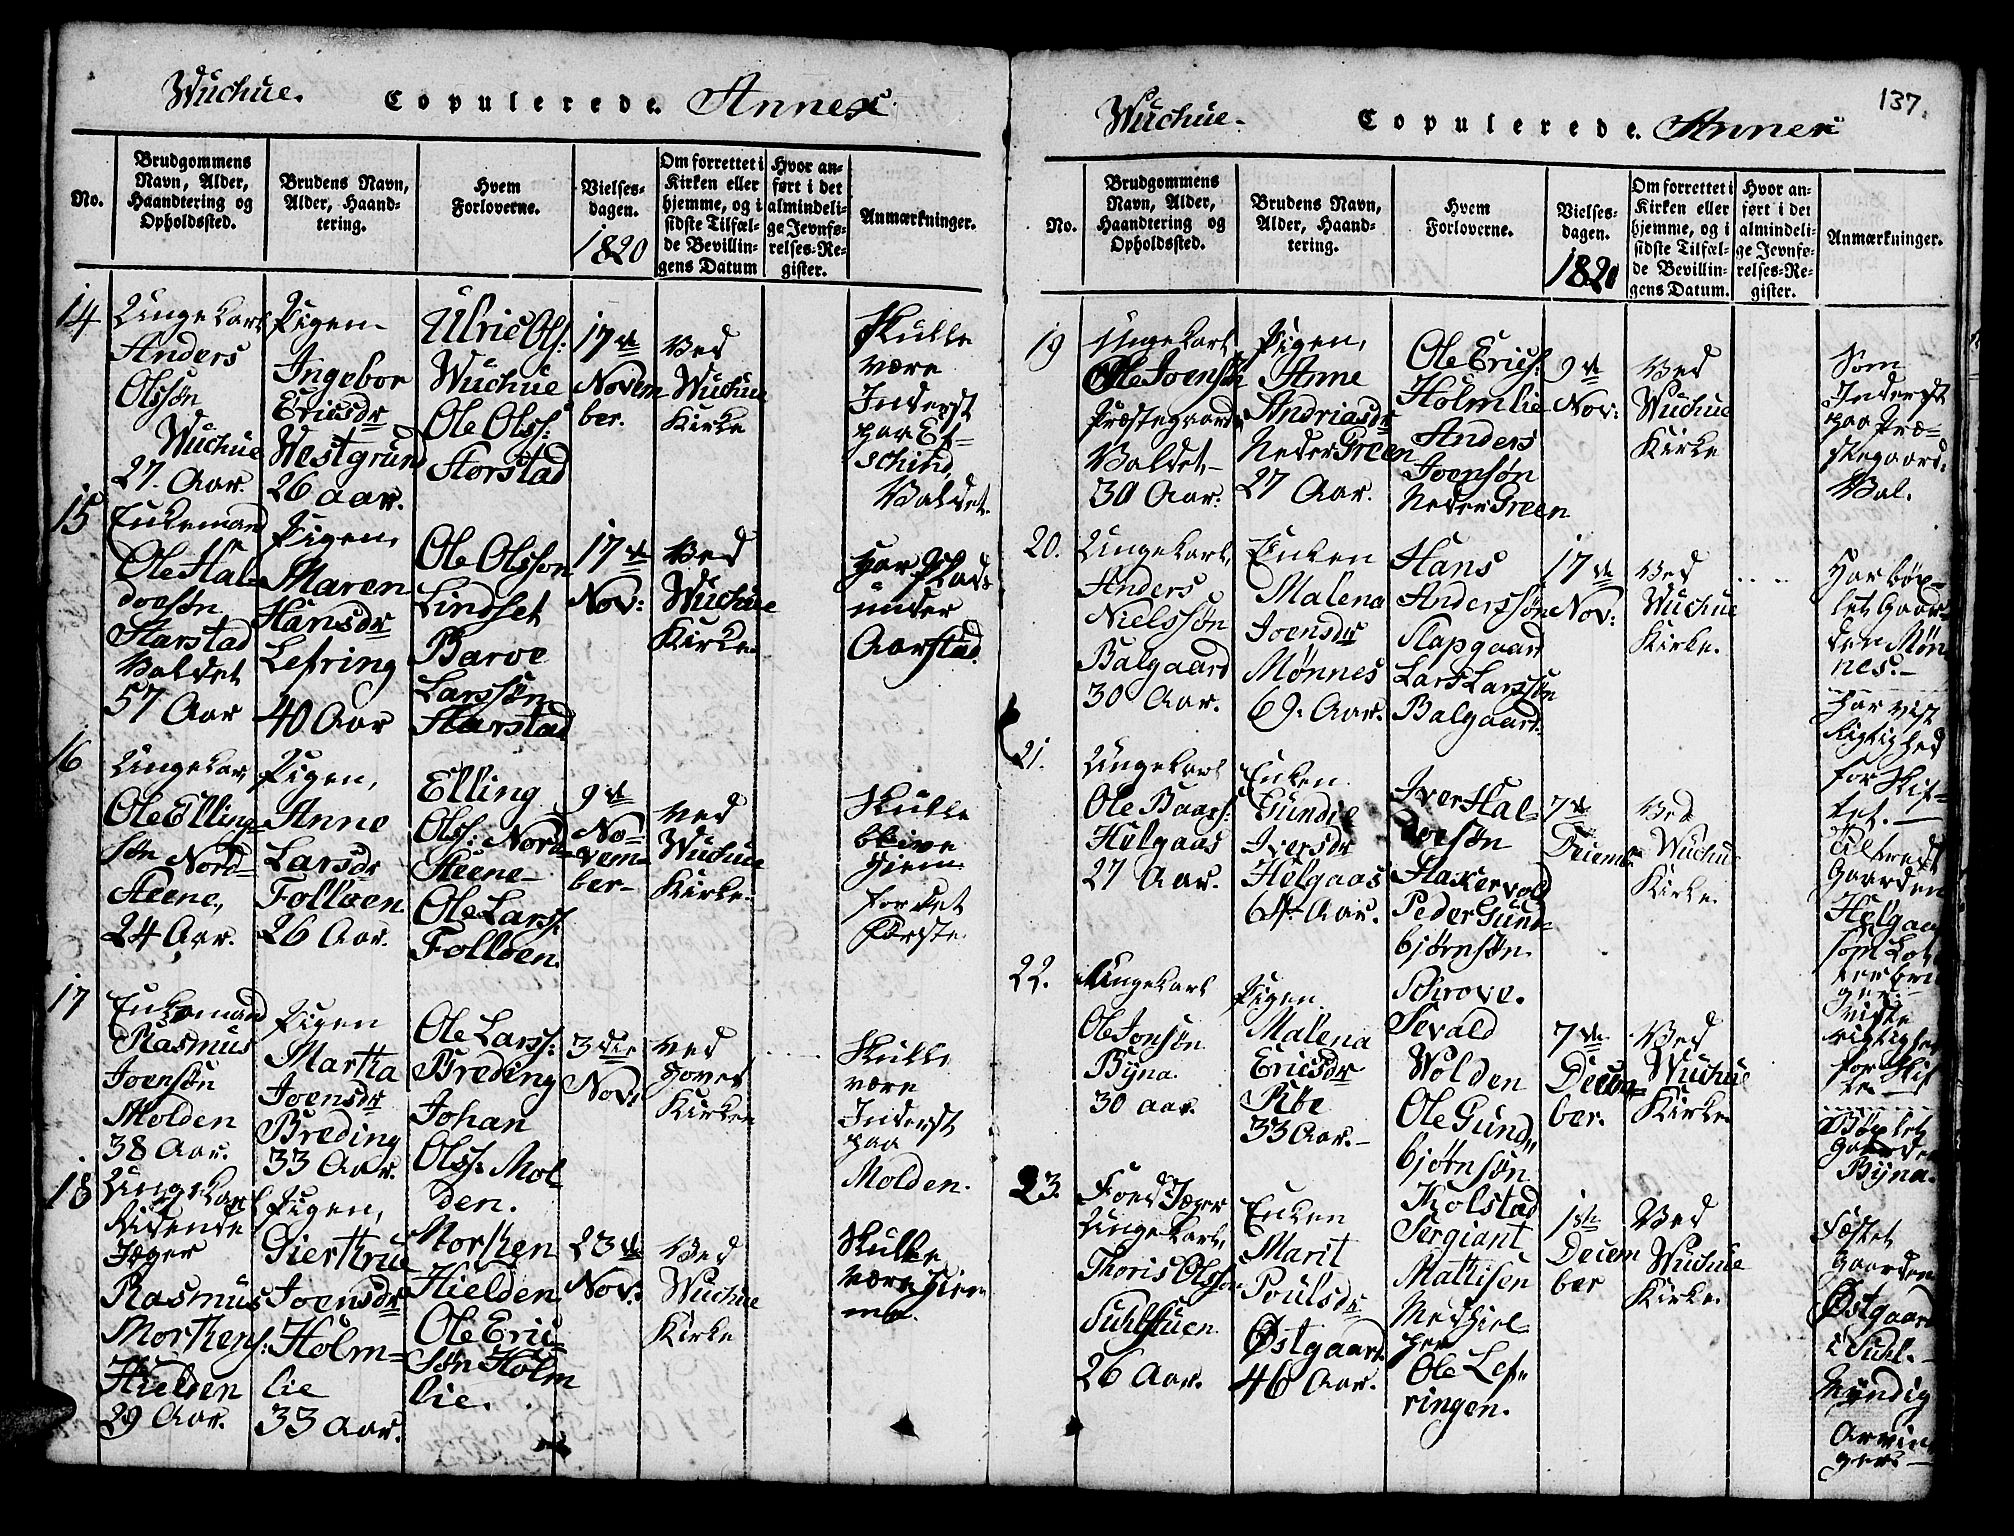 Wuchue. Copulerede. Annex
No.
Brudgommens
Navn, Alder,
Haandtering og
Opholdssted.
Brudens Navn,
Alder, Haand-
tering.
Hvem
Forloverne.
Vielses-
dagen.
1820
Om forrettet i
Kirken eller
hjemme, og i
sidste Tilfæl-
de Bevillin-
gens Datum
Hvor an-
ført i det
almindeli-
ge Jevnfø-
relses-Re-
gister.
Anmærkninger.
14
Ungekarl
Anders
Olssøn
Wuchue
27. Aar.
Pigen
Ingebor
Ericsdr
Westgrund
26 aar.
Ulric Ols:
Wuchue
Ole Olss:
Storstad
17de
Novem
ber.
Ved
Wuchue
Kirke
Skulle
være
Inderst
paa
Valdet.
15
Enkemand
Ole Hal-
doesøn
Harstad
Valdet
57 Aar
Pigen,
Maren
Hansdr
Lefring
40 Aar
Ole Olsson
Lindset
Baroe
Larssøn
Harstad
17de
Nov:
Ved
Wuchue
Kirke.
har Plads
under
Aarstad.
16
Ungekar,
Ole Elling-
søn Nord-
Steene,
24 Aar.
Pigen,
Anne
Larsdr
Folloen
26 Aar.
Elling
Olss: Nord-
Steene
Ole Larss:
Folloen.
9de
No-
vem-
ber-
Ved
Wuchue
Kirke.
Skulle
blive
hjem
for det
Første.
17
Enkemand
Rasmus
Joensøn
Molden
38 Aar.
Pigen
Martha
Joensdr
Breding
33 Aar.
Ole Larss:
Breding
Johan
Olss: Mol
den.
3die
Nov:
Ved
Hovet
Kirke
Skulle
være
Inderst
paa
Molden.
18
Ungekarl
Ridende
Jæger
Rasmus
Mortens:
Hielden
29 Aar.
Pigen,
Gierthrue
Joensdr
Holm-
lie
33 aar.
Morthen
Hielden
Ole Eric-
søn Holm
lie.
23de
Nov:
Ved
Wuchue
Kirke
Skulle
være Hiem
me.
137.
Wuchue. Copulerede. Annex
No.
Brudgommens
Navn, Alder,
Haandtering og
Opholdssted.
Brudens Navn,
Alder, Haand-
tering.
Hvem
Forloverne.
Vielses-
dagen.
1820
Om forrettet i
Kirken eller
hjemme, og i
sidste Tilfæl-
de Bevillin-
gens Datum.
Hvor an-
ført i det
almindeli-
ge Jevnfø-
relses-Re-
gister.
Anmærkninger.
19
Ungekarl
Ole Joensøn
Præstegaards
Valdet
30 Aar.
Pigen,
Anne
Andriasdr
Neder Green
27 Aar.
Ole Erics:
Holmlie
Anders
Joensøn
Neder Green
9de
Nov:
Ved
Wuchue
Kirke
Som
Inderst
paa Præ-
stegaard.
Val.
20.
Ungekarl,
Anders
Nielssøn
Balgaard
30 Aar.
Enken
Malena
Joensdr
Mønnes
69. Aar.
Hans
Anderssøn
Slapgaar
Lars Larssøn
Balgaard.
17de
Nov:
Ved
Wuchue
Kirke.
har bøx-
let Gaar
den Møn
nes.-
har vist
Rigtighed
for Skif-
tet.
21.
Ungekarl
Ole Baars:
Helgaas
27 Aar.
Enken
Gundie
Iversdr
Helgaas
64 Aar.
Iver Hal-
doesøn
Staxervold
Peder Gund-
bjørnsøn.
Schrove.
7de
Decemb
Ved
Wuchue
Kirke.
Tiltredt
Gaarden
Helgaas
som
Viste
Rigtighed
for Skif
te
22.
Ungekarl
Ole Jonsøn
Byna.
30 aar.
Pigen.
Malena
Ericsdr
Ribe
33 Aar.
Sevald
Wolden
Ole Gund-
bjørnsøn
Tholstad
7de
Decem-
ber.
Ved
Wuchue
Kirke.
Bøxlet
Gaarden
Byna.
23.
Foed Jæger
Ungekarl,
Thoris Olssøn
Suhlstuen
26 Aar.
Enken
Marit
Poulsdr
Østgaard.
46 Aar.
Sergiant
Mattisen
Medhiel-
per
Ole Lef-
ringen.
1ste
Decem
ber
Ved
Wuchue
Kirke.
Fæstet
Gaarden
Østgaard
i Suhl.
Myndig
Arvin
ger.